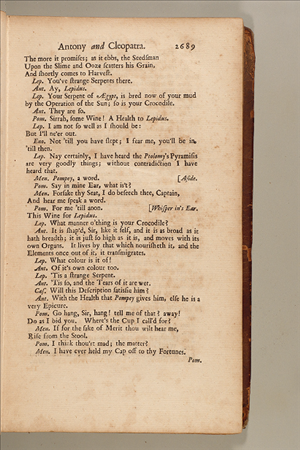 Antony and Cleopatra. 2689
The more it promises; as it ebbs, the Seedsman
Upon the Slime and Ooze scatters his Grain,
And shortly comes to Harvest.
Lep. You've strange Serpents there.
Ant. Ay, Lepidus.
Lep. Your Serpent of Ægypt, is bred now of your mud
by the Operation of the Sun; so is your Crocodile.
Ant. They are so.
Pom. Sirrah, some Wine! A Health to Lepidus.
Lep. I am not so well as I should be:
But I'll ne'er out.
Eno. Not 'till you have slept; I fear me, you'll be in,
'till then.
Lep. Nay certainly, I have heard the Ptolomy's Pyramisis
are very goodly things; without contradiction I have
heard that.
Men. Pompey, a word. [Aside.
Pom. Say in mine Ear, what is't?
Men. Forsake thy Seat, I do beseech thee, Captain,
And hear me speak a word.
Pom. For me 'till anon. [Whispers in's Ear.
This Wine for Lepidus.
Lep. What manner o'thing is your Crocodile?
Ant. It is shap'd, Sir, like it self, and it is as broad as it
hath breadth; it is just so high as it is, and moves with its
own Organs. It lives by that which nourisheth it, and the
Elements once out of it, it transmigrates.
Lep. What colour is it of?
Ant. Of it's own colour too.
Lep. 'Tis a strange Serpent.
Ant. 'Tis so, and the Tears of it are wet.
Cæs. Will this Description satisfie him?
Ant. With the Health that Pompey gives him, else he is a
very Epicure.
Pom. Go hang, Sir, hang! tell me of that? away!
Do as I bid you. Where's the Cup I call'd for?
Men. If for the sake of Merit thou wilt hear me,
Rise from the Stool.
Pom. I think thou'rt mad; the matter?
Men. I have ever held my Cap off to thy Fortunes.
Pom.